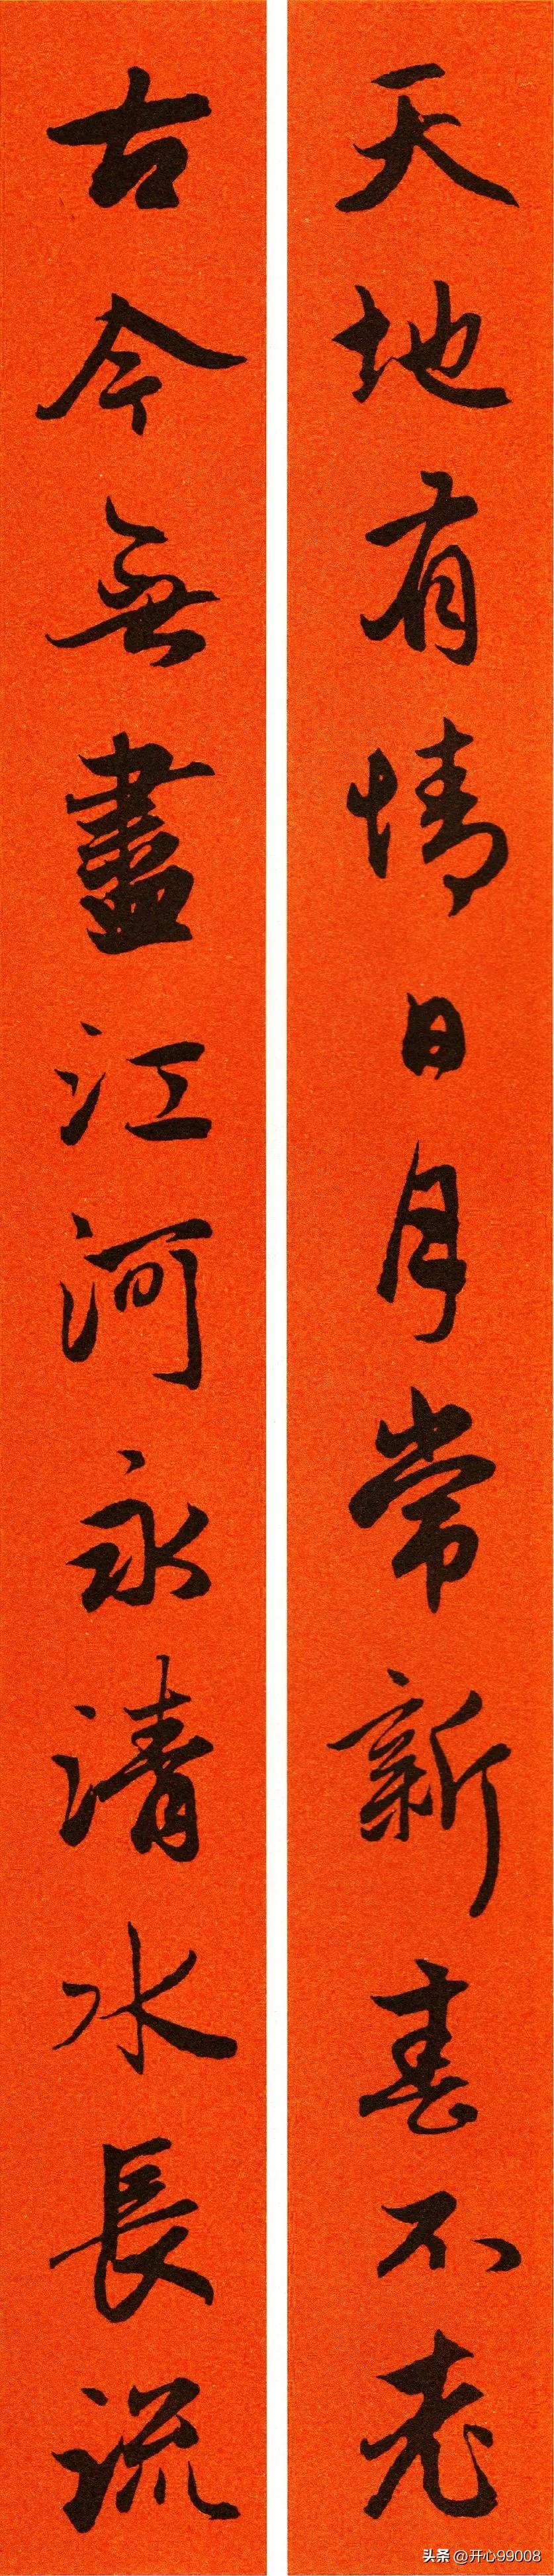 天地有情日月常新春不老
古今無盡江河永清水長流
头条 @开心99008